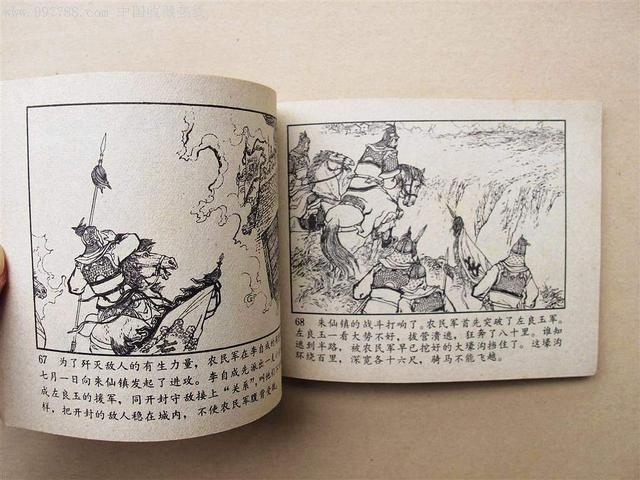 www.997788.com 中国收藏热线
67 为了歼灭敌人的有生力量，农民军在李自成的
七月一日向朱仙镇发起了进攻。李自成先派出一
成左良玉的援军，同开封守敌接上“关系”，叫他们
样，把开封的敌人稳在城内，不使农民军腹背受敌。
68 朱仙镇的战斗打响了。农民军首先突破了左良玉军。
左良玉一看大势不好，拔营溃逃，狂奔了八十里。谁知
逃到半路，被农民军早已挖好的大壕沟挡住了。这壕沟
环绕百里，深宽各十六尺，骑马不能飞越。